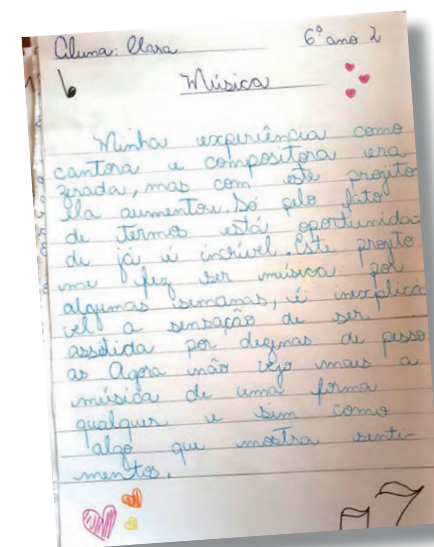 Aluna: Clara 6º ano 2
Música
Minha experiência como
cantora e compositora era
zerada, mas com este projeto
ela aumentou. Só pelo fato
de termos está oportunida-
de já é incrível. Este projto
me fez ser música por
algumas semanas, é inexplicá
vel a sensação de ser
assitida por dezenas de pesso
as Agora não vejo mais a
música de uma forma
qualquer e sim como
algo que mostra senti-
mentos.